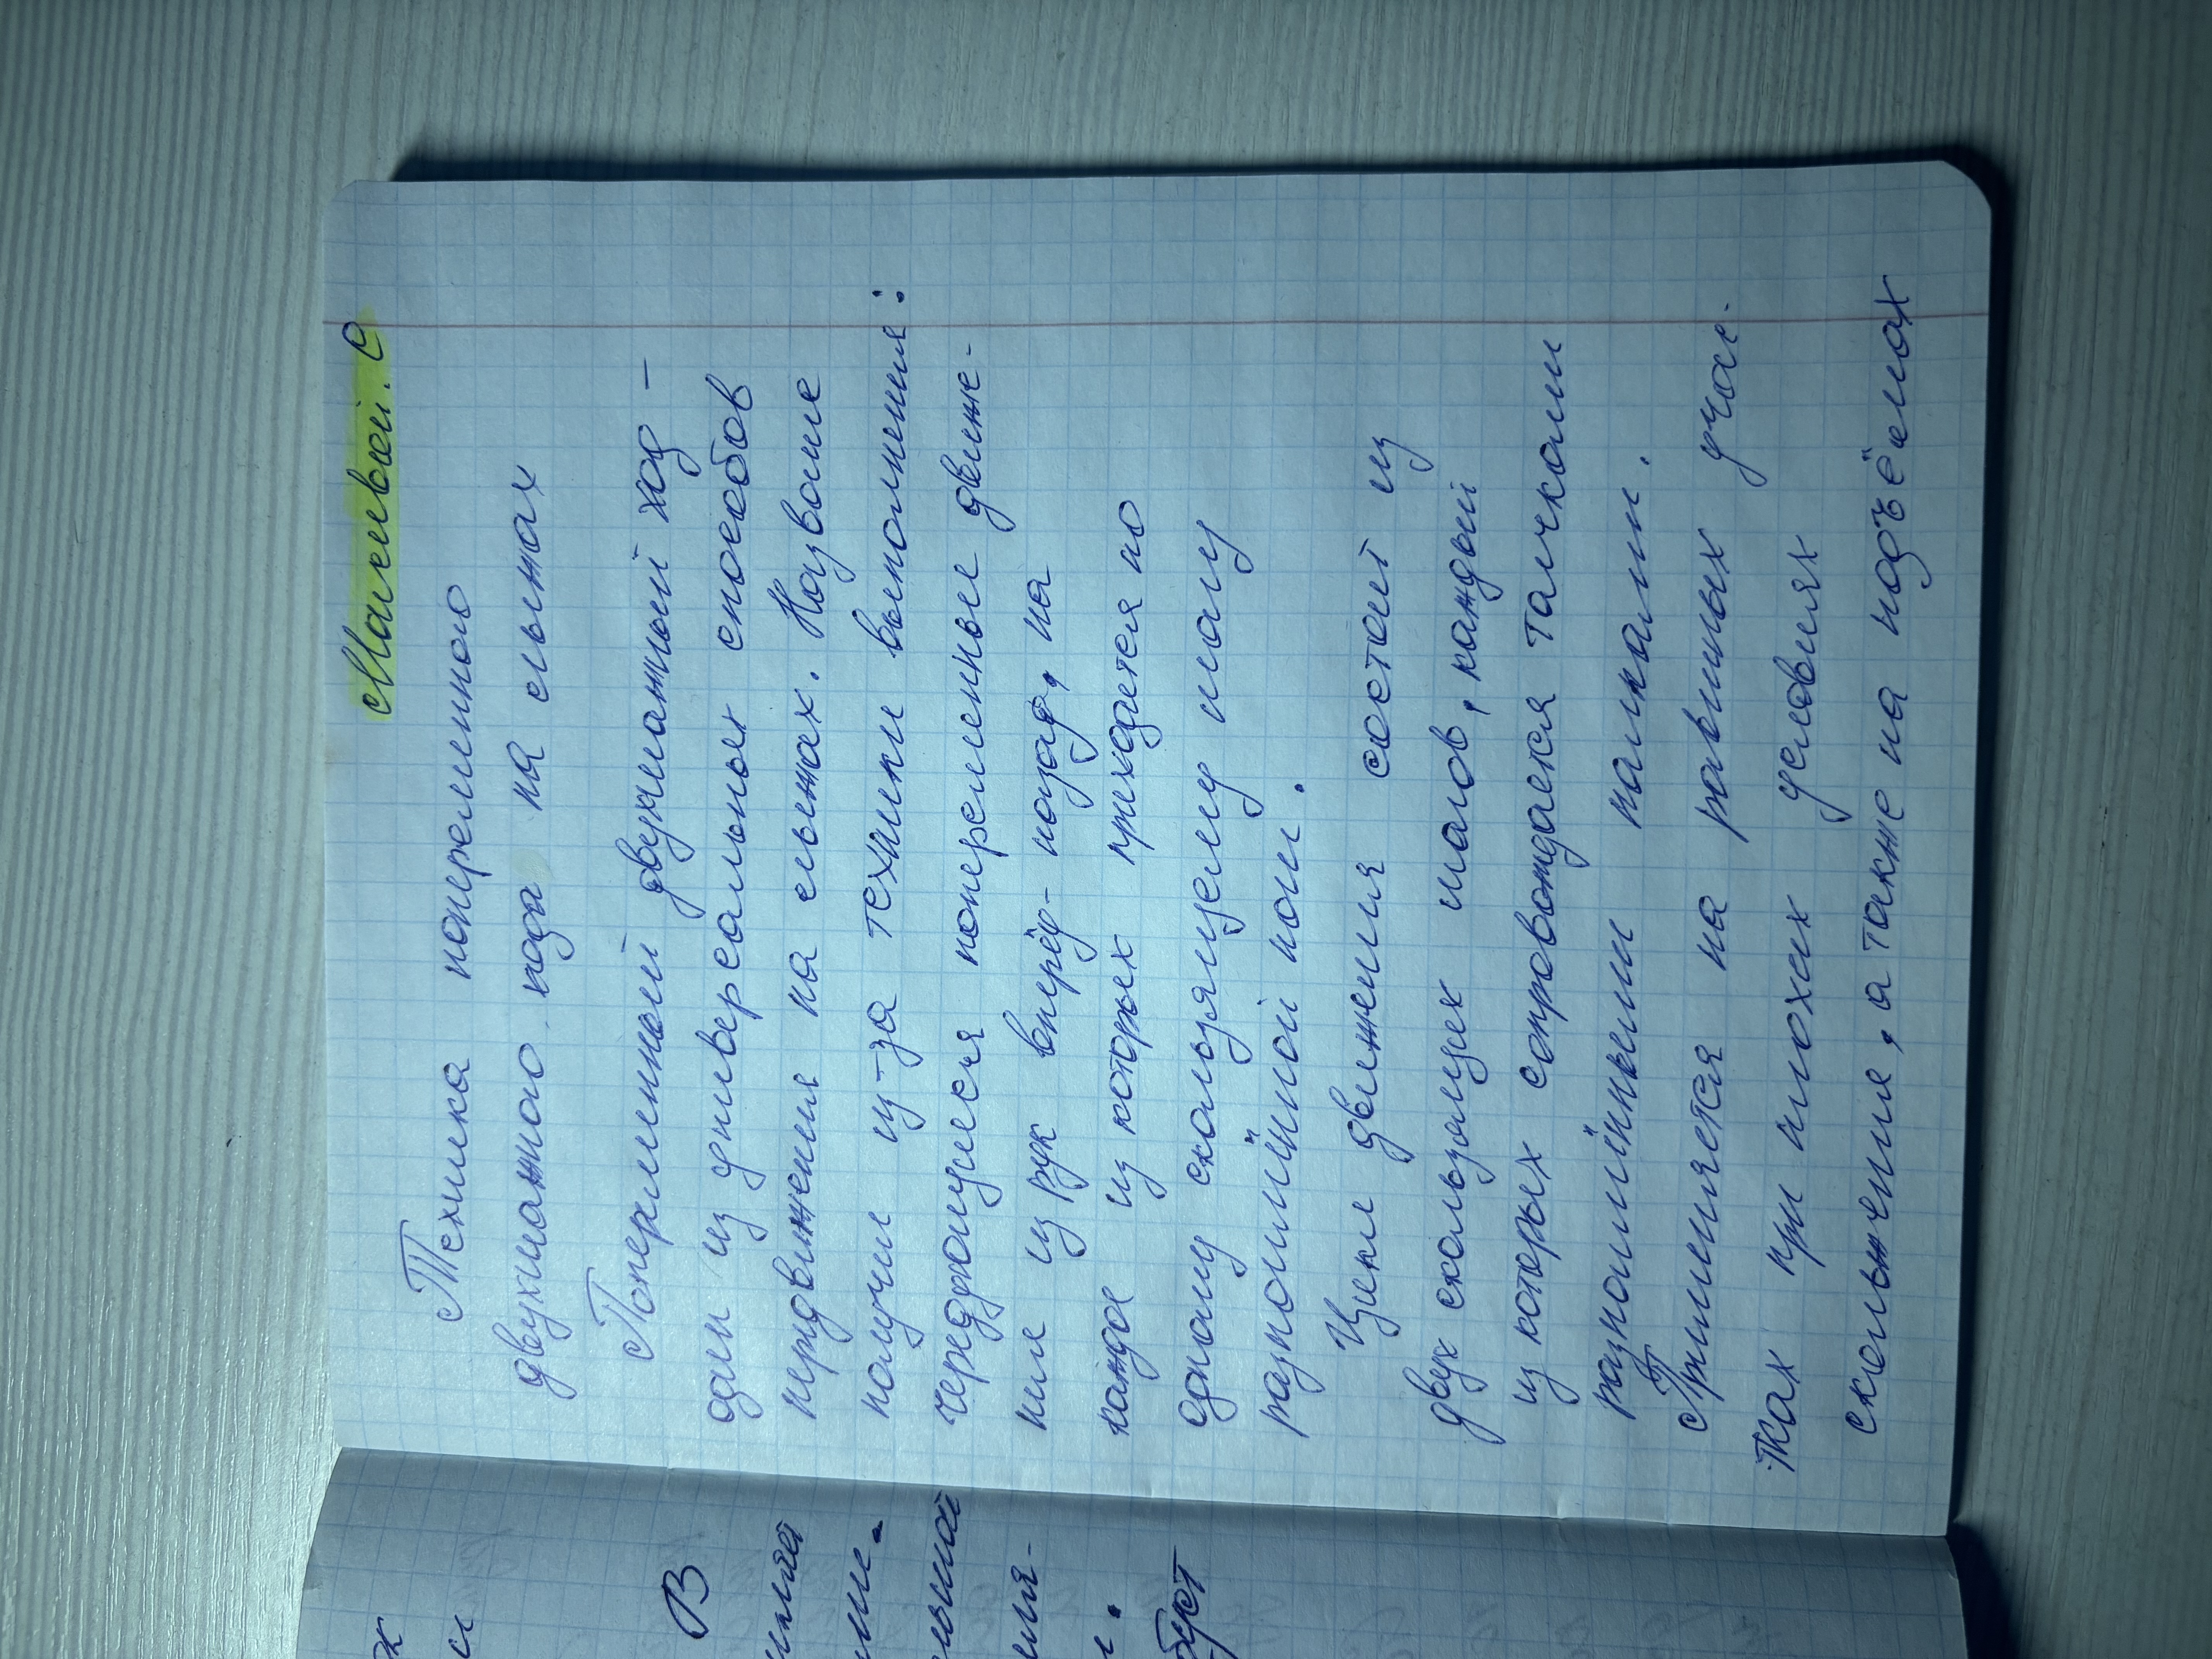 Матвей. С
Техника попеременного
двухшажного хода на лыжах
Попеременный двухшажный ход -
один из универсальных способов
передвижения на лыжах. Название
получил из-за техники выполнения:
чередующееся попеременное движе-
ние из рук вперёд-назад, на
каждое из которых приходится по
одному скользящему шагу
разноимённой ноги.
Цикл движения состоит из
двух скользящих шагов, каждый
из которых сопровождается толчками
разноимёнными палками.
Применяется на равнинных учас-
тках при плохих условиях
скольжения, а также на подъёмах
В